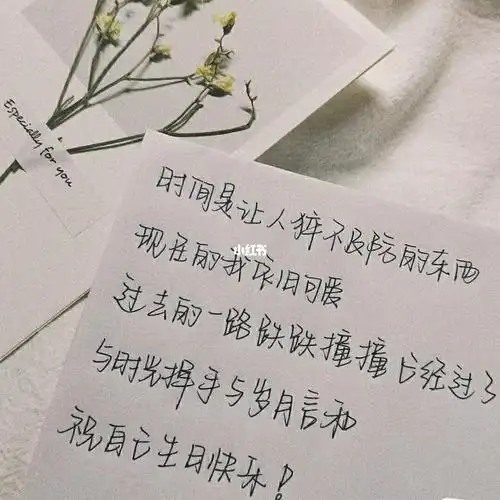 Especially for you
时间是让人猝不及防的东西
小红书
现在的我依旧可爱
过去的一路跌跌撞撞已经过了
与时光挥手与岁月言和
祝自己生日快乐!